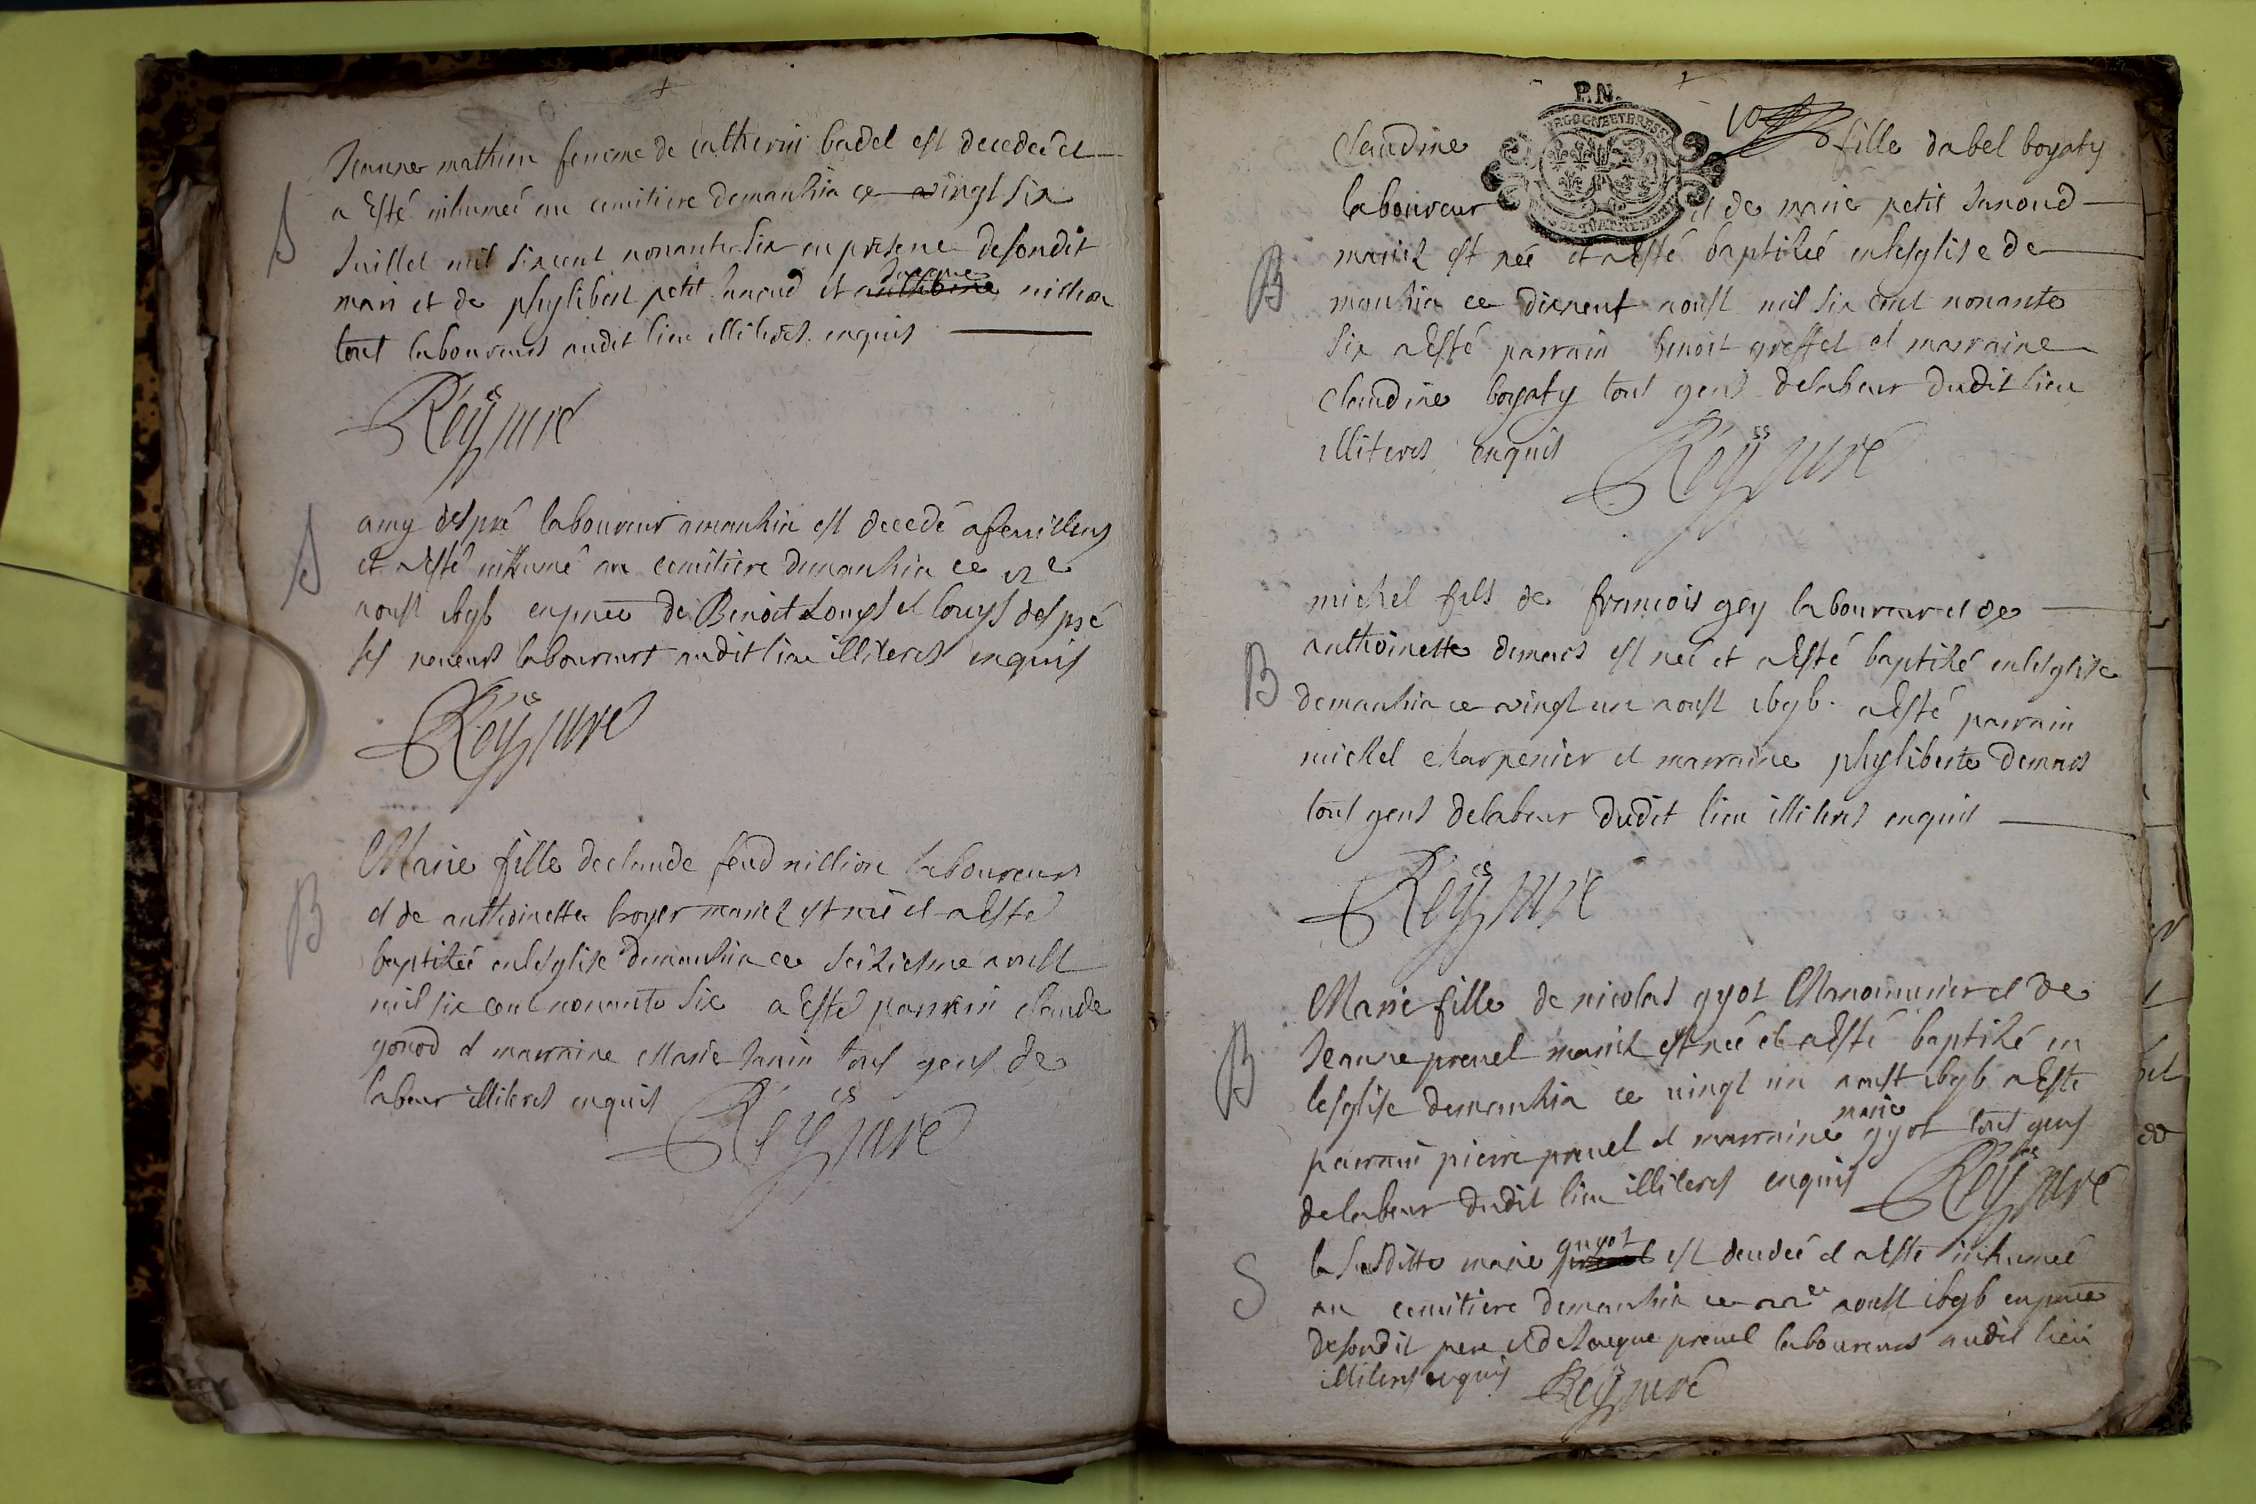 S
Jeanne mathieu femme de catherin badel est decedeé et
a Esté inhumeé au cemitiere demanhia ce vingt six
Juillet mil sixcent nonante six en presence desondit
mari et de phylibert petit Janoud et nillion
tout laboureurs audit lieu illiteres enquis
Reÿ curé
S
amy despré laboureur amanhia est decedé afeuillens
et aesté inhumé au cemitiere demanhia ce
aoust ibyb enpnce de Benoit Louys et louys despré
ses neveurs laboureurs audit lieu illiteres enquis
Reÿ curé
B
Marie fille declaude feud nillion laboureurs
et de anthoinette boyer mariez est neé et aEsté
baptizeé enlesglise demanhia ce seiziesme aoust
mil six cent nonante six a Esté parrain claude
gonod et marraine Marie Janin tout gens de
labeur illiteres enquis
Reÿ curé
P.N.
Claudine fille dabel bogaty
laboureur et de marie petit Janoud
B
mariez est neé et aesté baptizeé enlesglise de
manhia ce dixneuf aoust mil six cent nonante
six aEsté parrain benoit greffet et marraine
Claudine bogaty tout gens delabeur dudit lieu
illiteres enquis
Reÿ curé
michel fils de francois gey laboureur et de
anthoinette demars est neé et aEsté baptizé enlesglise
B
demanhia ce vingt un aoust ibyb. aEsté parrain
michel charpenier et marraine phyliberte demars
tout gens delabeur dudit lieu illiteres enquis
Reÿ curé
Marie fille de nicolas gyot Manouurier et de
B
Jeanne preuel mariez est neé et aEsté baptizé en
lesglise demanhia ce vingt un aoust ibyb aEsté
parrain pierre preuel et marraine marie gyot tout gens
delabeur dudit lieu illiteres enquis
Reÿ curé
S
la susditte marie guyot est decedeé et aEsté inhumeé
au cemitiere demanhia ce aoust ibyb enpnce
desondit pere et de Jacque preuel laboureurs audit lieu
illiteres enquis
Reÿ curé